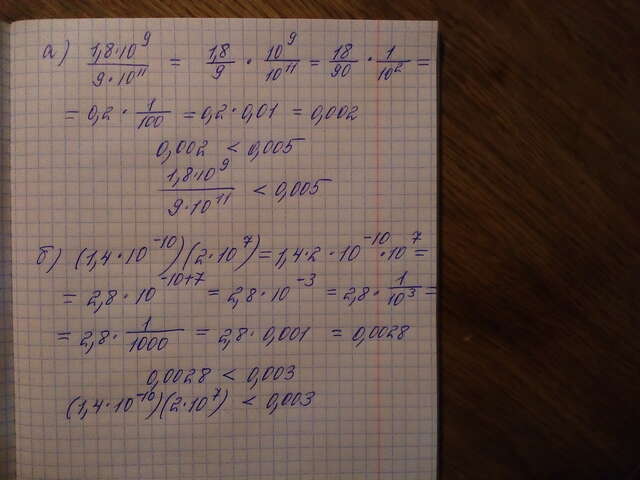 а) (1,8·10^9)/(9·10^11) = 1,8/9 · 10^9/10^11 = 18/90 · 1/10^2 =
= 0,2 · 1/100 = 0,2·0,01 = 0,002
0,002 < 0,005
(1,8·10^9)/(9·10^11) < 0,005
б) (1,4·10^-10)(2·10^7) = 1,4·2·10^-10·10^7 =
= 2,8·10^-10+7 = 2,8·10^-3 = 2,8·1/10^3 =
= 2,8·1/1000 = 2,8·0,001 = 0,0028
0,0028 < 0,003
(1,4·10^-10)(2·10^7) < 0,003